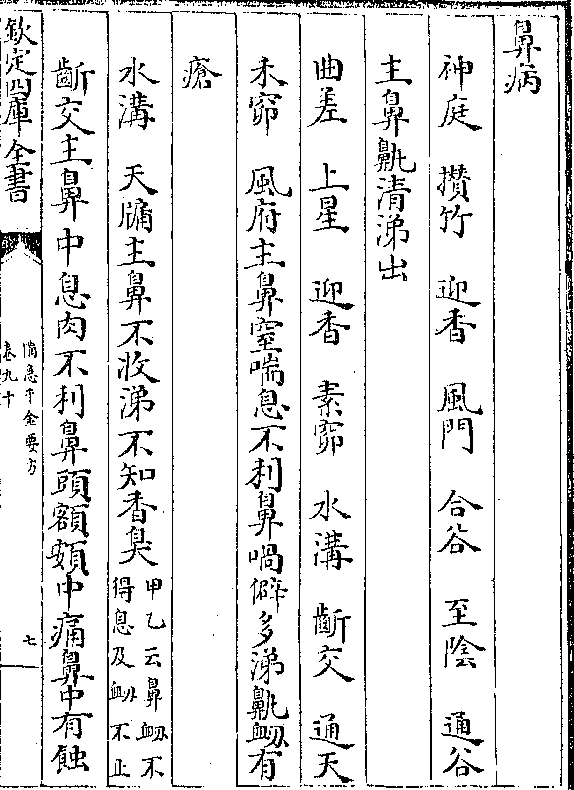 鼻病
神庭　攅竹　迎香　風門　合谷　至陰　通谷
主鼻鼽清涕出
曲差　上星　迎香　素窌　水溝　齗交　通天
禾窌　風府主鼻窒喘息不利鼻喎僻多涕鼽衂有
瘡
水溝　天牖主鼻不收涕不知香臭
甲乙云鼻衂不
得息及衂不止
齗交主鼻中息肉不利鼻頭額頞中痛鼻中有蝕
欽定四庫全書
備急千金要方
卷九十
七